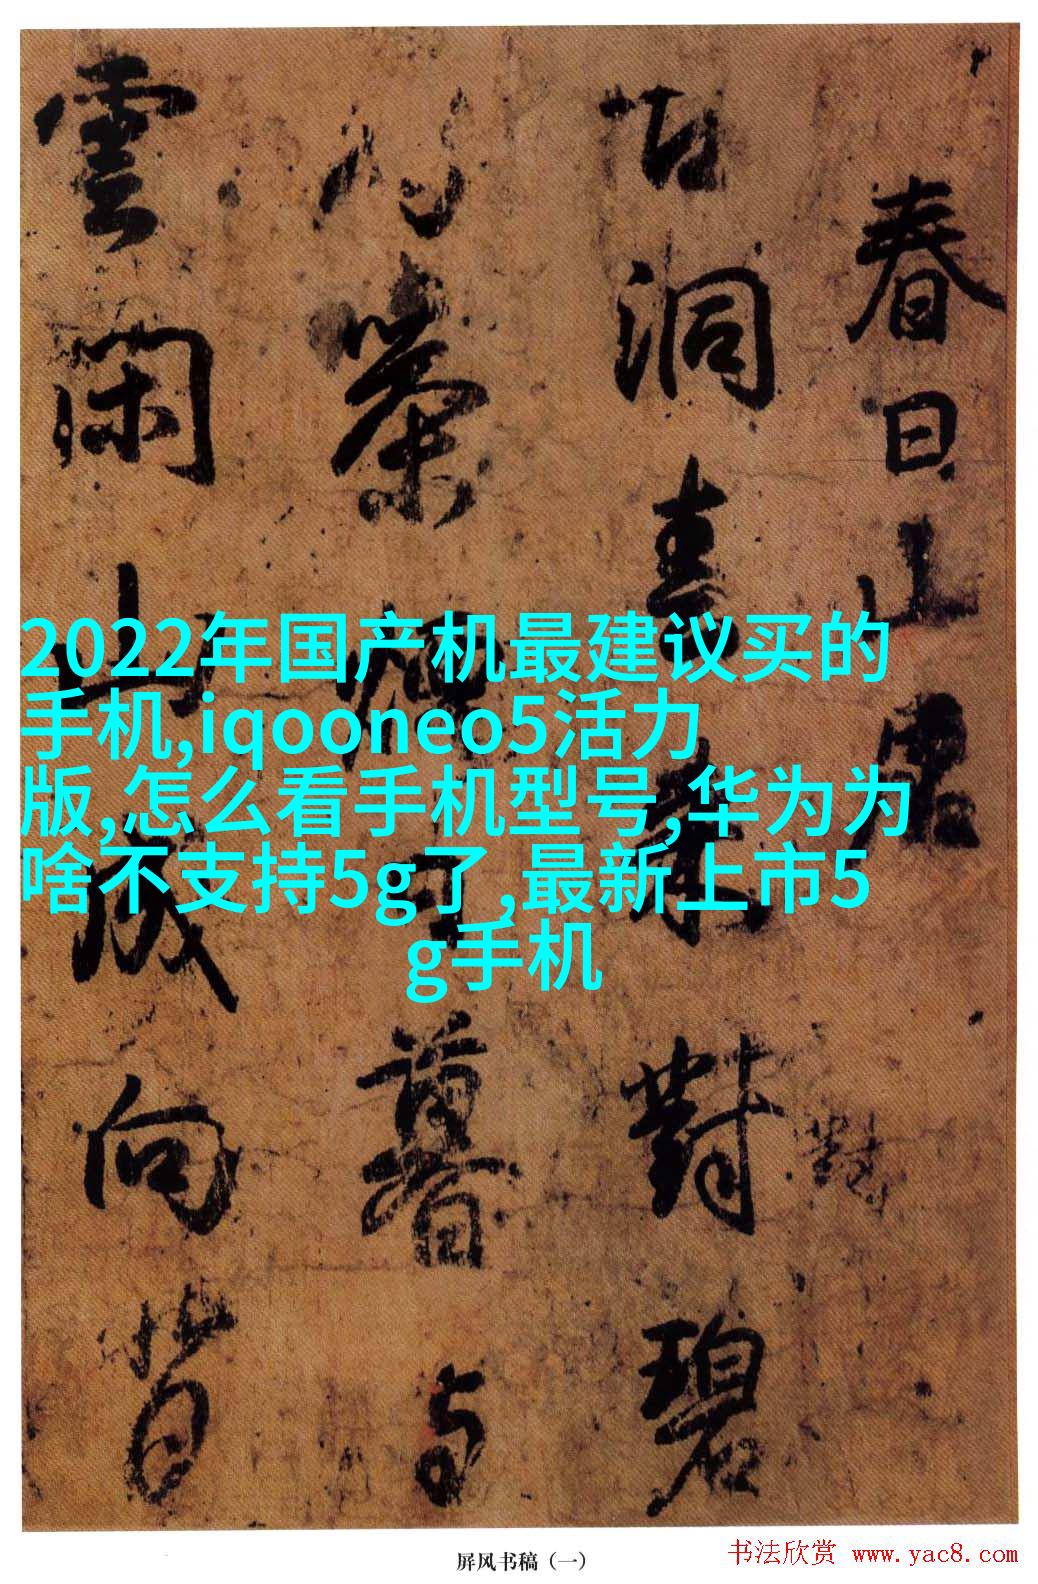 春日山居
古洞春来對碧
對
心榮
暮与
雲闲山
成向背
2022年国产机最建议买的
手机,iqooneo5活力
版,怎么看手机型号,华为为
啥不支持5g了,最新上市5
g手机
屏风书稿（一）
书法欣赏 www.yac8.com